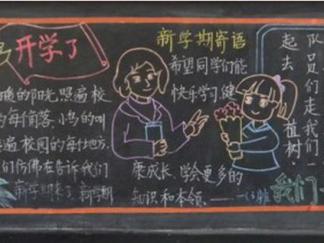 开学了
暖的阳光照遍校
的每个角落、小鸟的叫
遍校园的每寸地方.
们仿佛在告诉我们
新学期来了,新学期
新学期寄语
希望同学们能
快乐学习,健
康成长,学会更多的
知识和本领.
队员们走
起去植树
我们